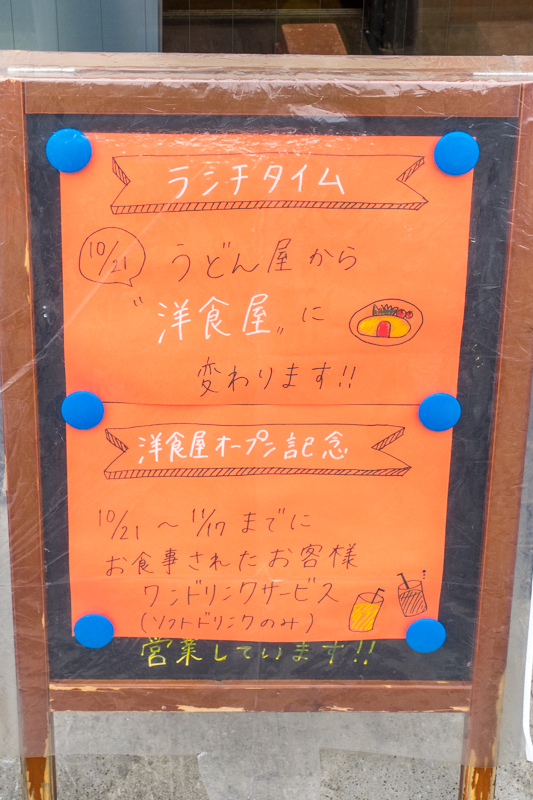 ランチタイム
10/21 うどん屋から
"洋食屋"に
変わります!!
洋食屋オープン記念
10/21 ～ 11/17 までに
お食事されたお客様
ワンドリンクサービス
(ソフトドリンクのみ)
営業しています!!